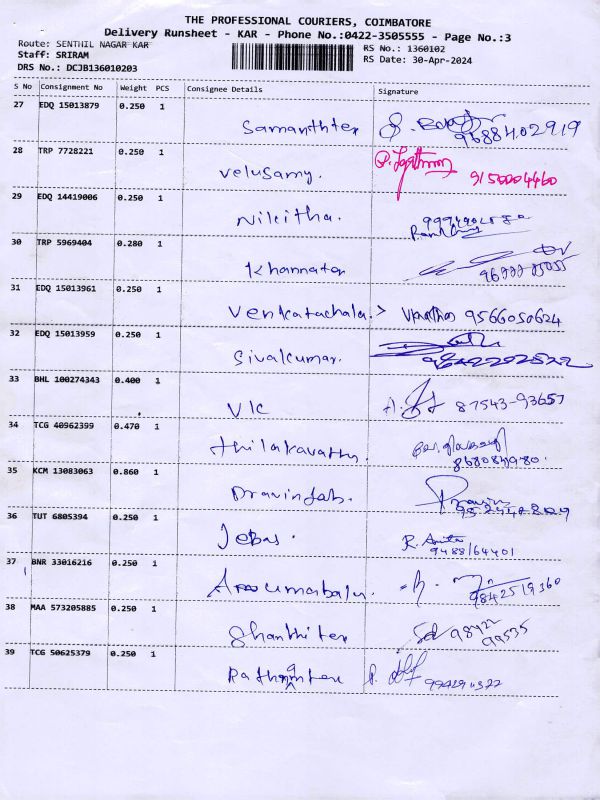 THE PROFESSIONAL COURIERS, COIMBATORE
Delivery Runsheet - KAR - Phone No.:0422-3505555 - Page No.:3
Route: SENTHIL NAGAR KAR
RS No.: 1360102
Staff: SRIRAM
RS Date: 30-Apr-2024
DRS No.: DCJB136010203
S No Consignment No Weight PCS Consignee Details Signature
27 EDQ 15013879 0.250 1
Samanthter
9688402919
28 TRP 7728221 0.250 1
Velusamy.
9150004460
29 EDQ 14419006 0.250 1
Nikitha.
30 TRP 5969404 0.280 1
Khannater
31 EDQ 15013961 0.250 1
Venkatachala.> 9566050624
32 EDQ 15013959 0.250 1
Sivalkumar.
33 BHL 100274343 0.400 1
VLC 87543-93657
34 TCG 40962399 0.470 1
thilakavathy.
35 KCM 13083063 0.860 1
36 TUT 6805394 0.250 1
Jebas. R. Anita
9488164401
37 BNR 33016216 0.250 1
9842519360
38 MAA 573205885 0.250 1
Shanthiter
39 TCG 50625379 0.250 1